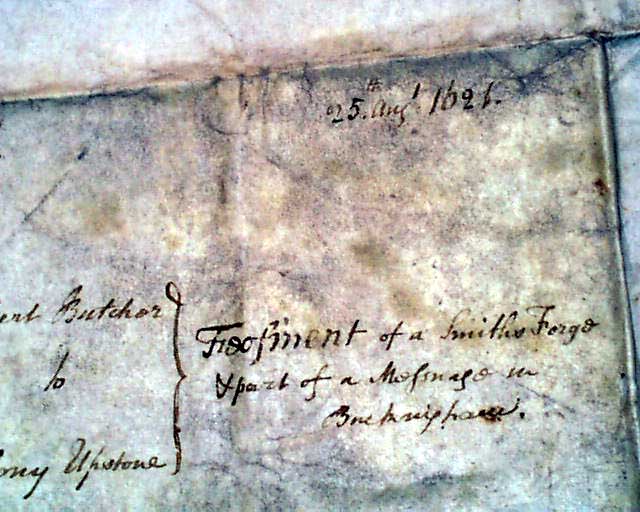 25.th Augt. 1621.
ent Butcher
to
ony Upstone
Feofment of a Smiths Forge
& part of a Messuage in
Buckingham.